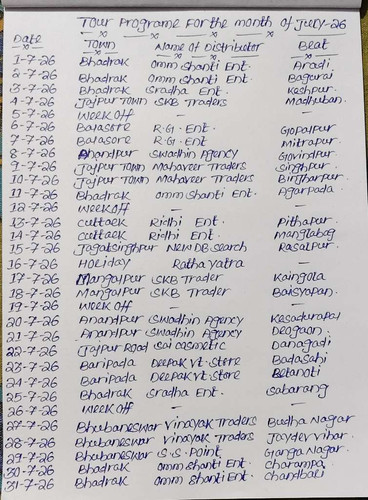 Tour Programe For the month of July-26
Date Town Name of Distributor Beat
1-7-26 Bhadrak Omm Shanti Ent. Aradi
2-7-26 Bhadrak Omm Shanti Ent. Bagurai
3-7-26 Bhadrak Sradha Ent. Keshpur
4-7-26 Jajpur Town SKB Traders Madhuban
5-7-26 Week off —
6-7-26 Balasore R.G. Ent. Gopalpur
7-7-26 Balasore R.G. Ent. Mitrapur
8-7-26 Anandpur Swadhin Agency Govindpur
9-7-26 Jajpur Town Mahaveer Traders Singhpur
10-7-26 Jajpur Town Mahaveer Traders Binjharpur
11-7-26 Bhadrak Omm Shanti Ent. Agarpada
12-7-26 Week off — —
13-7-26 Cuttack Ridhi Ent. Pithapur
14-7-26 Cuttack Ridhi Ent. Manglabag
15-7-26 Jagatsinghpur New DB Search Rasalpur
16-7-26 Holiday Ratha Yatra —
17-7-26 Mangalpur SKB Trader Kaingola
18-7-26 Mangalpur SKB Trader Baisyapan
19-7-26 Week off — —
20-7-26 Anandpur Swadhin Agency Kesadurapal
21-7-26 Anandpur Swadhin Agency Deogaon
22-7-26 Jajpur Road Sai Cosmetic Danagadi
23-7-26 Baripada Deepak Vt. Store Badasahi
24-7-26 Baripada Deepak Vt. Store Betanoti
25-7-26 Bhadrak Sradha Ent. Sabarang
26-7-26 Week off — —
27-7-26 Bhubaneswar Vinayak Traders Budha Nagar
28-7-26 Bhubaneswar Vinayak Traders Jaydev Vihar
29-7-26 Bhubaneswar S.S. Point Ganga Nagar
30-7-26 Bhadrak Omm Shanti Ent. Charampa
31-7-26 Bhadrak Omm Shanti Ent. Chandbali